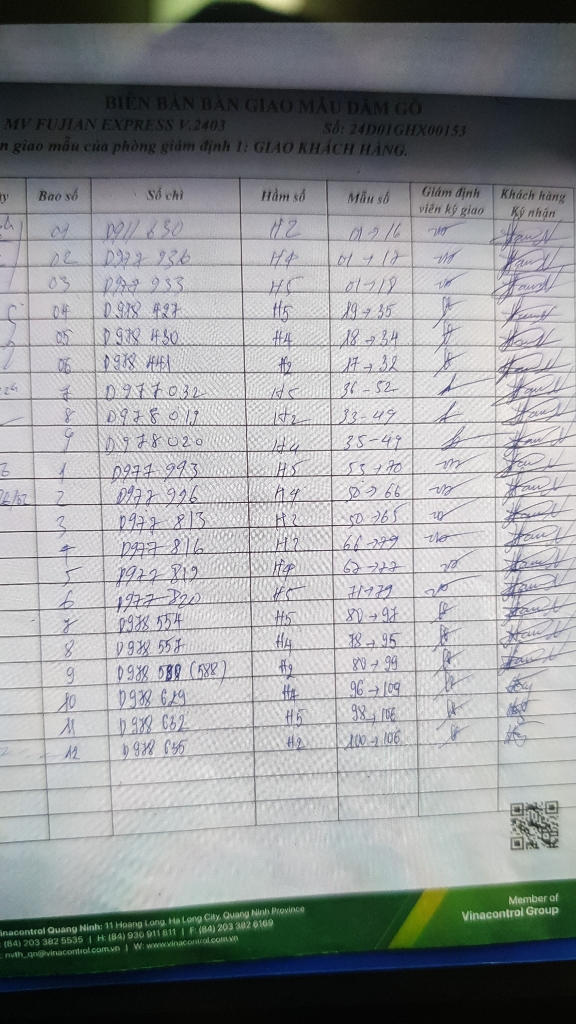 BIÊN BẢN BÀN GIAO MẪU DĂM GỖ
MV FUJIAN EXPRESS V.2403 Số: 24D01GHX00153
n giao mẫu của phòng giám định 1: GIAO KHÁCH HÀNG.
Bao số Số chì Hầm số Mẫu số Giám định viên ký giao Khách hàng Ký nhận
01 H2 01→16
02 D977 936 H4 01→17
03 D977 933 H5 01→18
04 D978 427 H5 19→35
05 D978 430 H4 18→34
06 D978 441 H2 17→32
7 D977032 H5 36-52
8 D978019 H2 33-49
9 D978020 H4 35-49
1 D977 993 H5 53→70
2 D977 926 H4 50→66
3 D977 813 H2 50→65
4 D977 816 H2 66→79
5 D977 819 H4 67→77
6 D977 820 H5 71→79
7 D978 554 H5 80→97
8 D978 557 H4 78→95
9 D978 (588) H2 80→99
10 D978 629 H4 96→109
11 D978 632 H5 98→106
12 D978 635 H2 100→106
Vinacontrol Quang Ninh: 11 Hoang Long, Ha Long City, Quang Ninh Province
(84) 203 382 5535 | H: (84) 930 911 811 | F: (84) 203 382 6169
nvth_qn@vinacontrol.com.vn | W: www.vinacontrol.com.vn
Member of
Vinacontrol Group